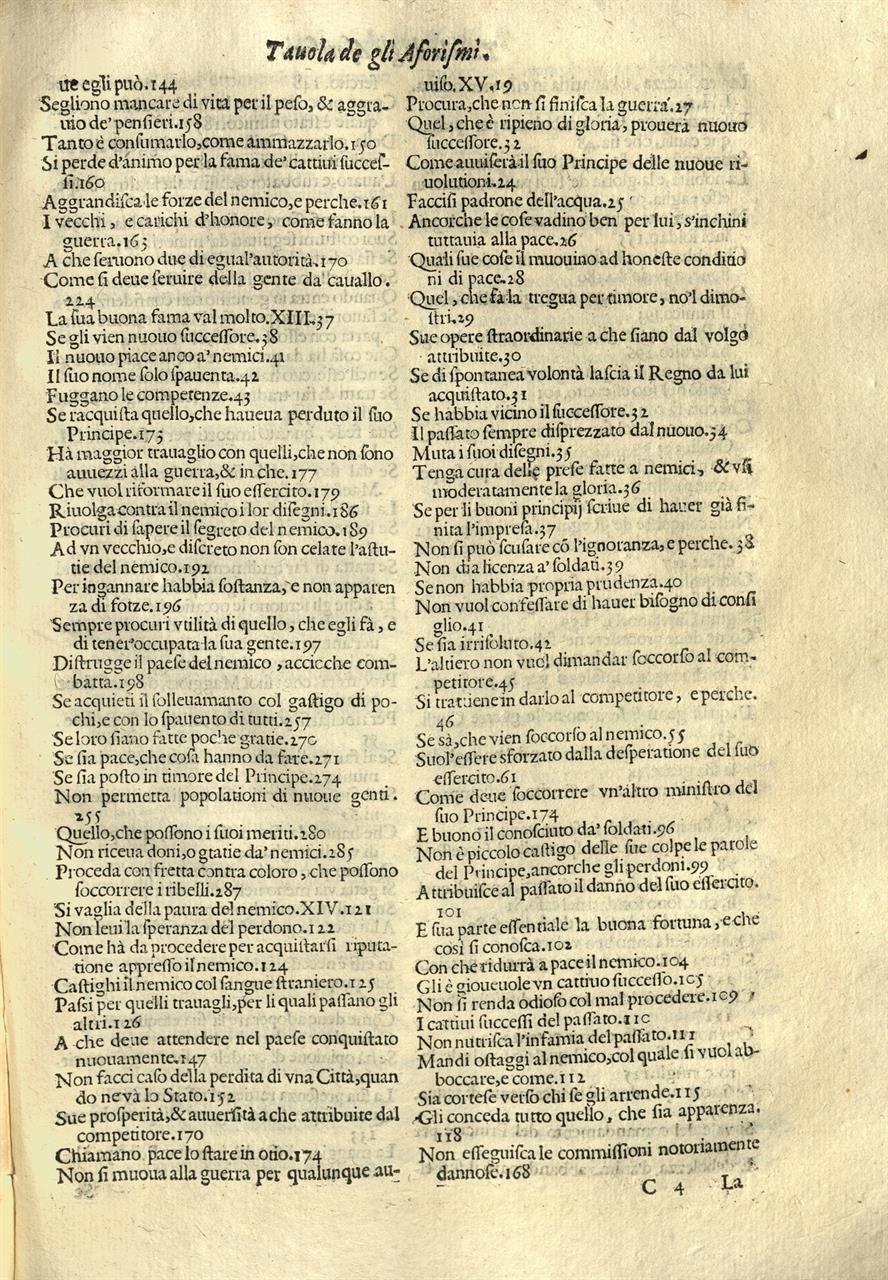 Tauola de gli Aforiſmi.
ue egli può.144
Segliono mancare di vita per il peſo, & aggra-
uio de' penſieri.158
Tanto è conſumarlo,come ammazzarlo.150
Si perde d'animo per la fama de' cattiui ſucceſ-
ſi.160
Aggrandiſca le forze del nemico,e perche.161
I vecchi, e carichi d'honore, come fanno la
guerra.163
A che ſeruono due di egual'autorità.170
Come ſi deue ſeruire della gente da cauallo.
224
La ſua buona fama val molto.XIII.37
Se gli vien nuouo ſucceſſore.38
Il nuouo piace anco a' nemici.41
Il ſuo nome ſolo ſpauenta.42
Fuggano le competenze.43
Se racquiſta quello,che haueua perduto il ſuo
Principe.173
Hà maggior trauaglio con quelli,che non ſono
auuezzi alla guerra,& in che.177
Che vuol riformare il ſuo eſſercito.179
Riuolga contra il nemico i lor diſegni.186
Procuri di ſapere il ſegreto del nemico.189
Ad vn vecchio,e diſcreto non ſon celate l'aſtu-
tie del nemico.192
Per ingannare habbia ſoſtanza, e non apparen
za di fotze.196
Sempre procuri vtilità di quello, che egli fà, e
di tener'occupata la ſua gente.197
Diſtrugge il paeſe del nemico, accioche com-
batta.198
Se acquieti il ſolleuamanto col gaſtigo di po-
chi,e con lo ſpauento di tutti.257
Se loro ſiano fatte poche gratie.270
Se ſia pace,che coſa hanno da fare.271
Se ſia poſto in timore del Principe.274
Non permetta popolationi di nuoue genti.
255
Quello,che poſſono i ſuoi meriti.280
Non riceua doni,o gtatie da' nemici.285
Proceda con fretta contra coloro, che poſſono
ſoccorrere i ribelli.287
Si vaglia della paura del nemico.XIV.121
Non leui la ſperanza del perdono.122
Come hà da procedere per acquiſtarſi riputa-
tione appreſſo il nemico.124
Caſtighi il nemico col ſangue ſtraniero.125
Paſſi per quelli trauagli,per li quali paſſano gli
altri.126
A che deue attendere nel paeſe conquiſtato
nuouamente.147
Non facci caſo della perdita di vna Città,quan
do ne và lo Stato.152
Sue proſperità,& auuerſità a che attribuite dal
competitore.170
Chiamano pace lo ſtare in otio.174
Non ſi muoua alla guerra per qualunque au-
uiſo.XV.19
Procura,che non ſi finiſca la guerra.27
Quel,che è ripieno di gloria, prouerà nuouo
ſucceſſore.32
Come auuiſerà il ſuo Principe delle nuoue ri-
uolutioni.24
Facciſi padrone dell'acqua.25
Ancorche le coſe vadino ben per lui, s'inchini
tuttauia alla pace.26
Quali ſue coſe il muouino ad honeſte conditio
ni di pace.28
Quel, che fà la tregua per timore, no'l dimo-
ſtri.29
Sue opere ſtraordinarie a che ſiano dal volgo
attribuite.30
Se di ſpontanea volontà laſcia il Regno da lui
acquiſtato.31
Se habbia vicino il ſucceſſore.32
Il paſſato ſempre diſprezzato dal nuouo.34
Muta i ſuoi diſegni.35
Tenga cura delle preſe fatte a nemici, & vſi
moderatamente la gloria.36
Se per li buoni principij ſcriue di hauer già fi-
nita l'impreſa.37
Non ſi può ſcuſare cõ l'ignoranza, e perche. 38
Non dia licenza a' ſoldati.39
Se non habbia propria prudenza.40
Non vuol confeſſare di hauer biſogno di conſi
glio.41
Se ſia irriſoluto.42
L'altiero non vuol dimandar ſoccorſo al com-
petitore.45
Si trattiene in darlo al competitore, e perche.
46
Se sà,che vien ſoccorſo al nemico.55
Suol'eſſere sforzato dalla deſperatione del ſuo
eſſercito.61
Come deue ſoccorrere vn'altro miniſtro del
ſuo Principe.174
E buono il conoſciuto da' ſoldati.96
Non è piccolo caſtigo delle ſue colpe le parole
del Principe,ancorche gli perdoni.99
Attribuiſce al paſſato il danno del ſuo eſſercito.
101
E ſua parte eſſentiale la buona fortuna, e che
così ſi conoſca.102
Con che ridurrà a pace il nemico.104
Gli è gioueuole vn cattiuo ſucceſſo.105
Non ſi renda odioſo col mal procedere.109
I cattiui ſucceſſi del paſſato.110
Non nutriſca l'infamia del paſſato.111
Mandi oſtaggi al nemico,col quale ſi vuol ab-
boccare,e come.112
Sia corteſe verſo chi ſe gli arrende.115
Gli conceda tutto quello, che ſia apparenza.
118
Non eſſeguiſca le commiſſioni notoriamente
dannoſe.168
C 4 La